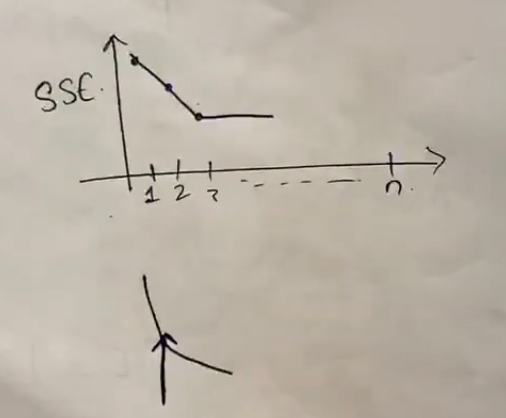 SSE.
1 2 3 ----- n.